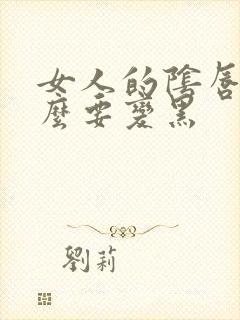 女人的陰唇
麼要變黑
劉莉